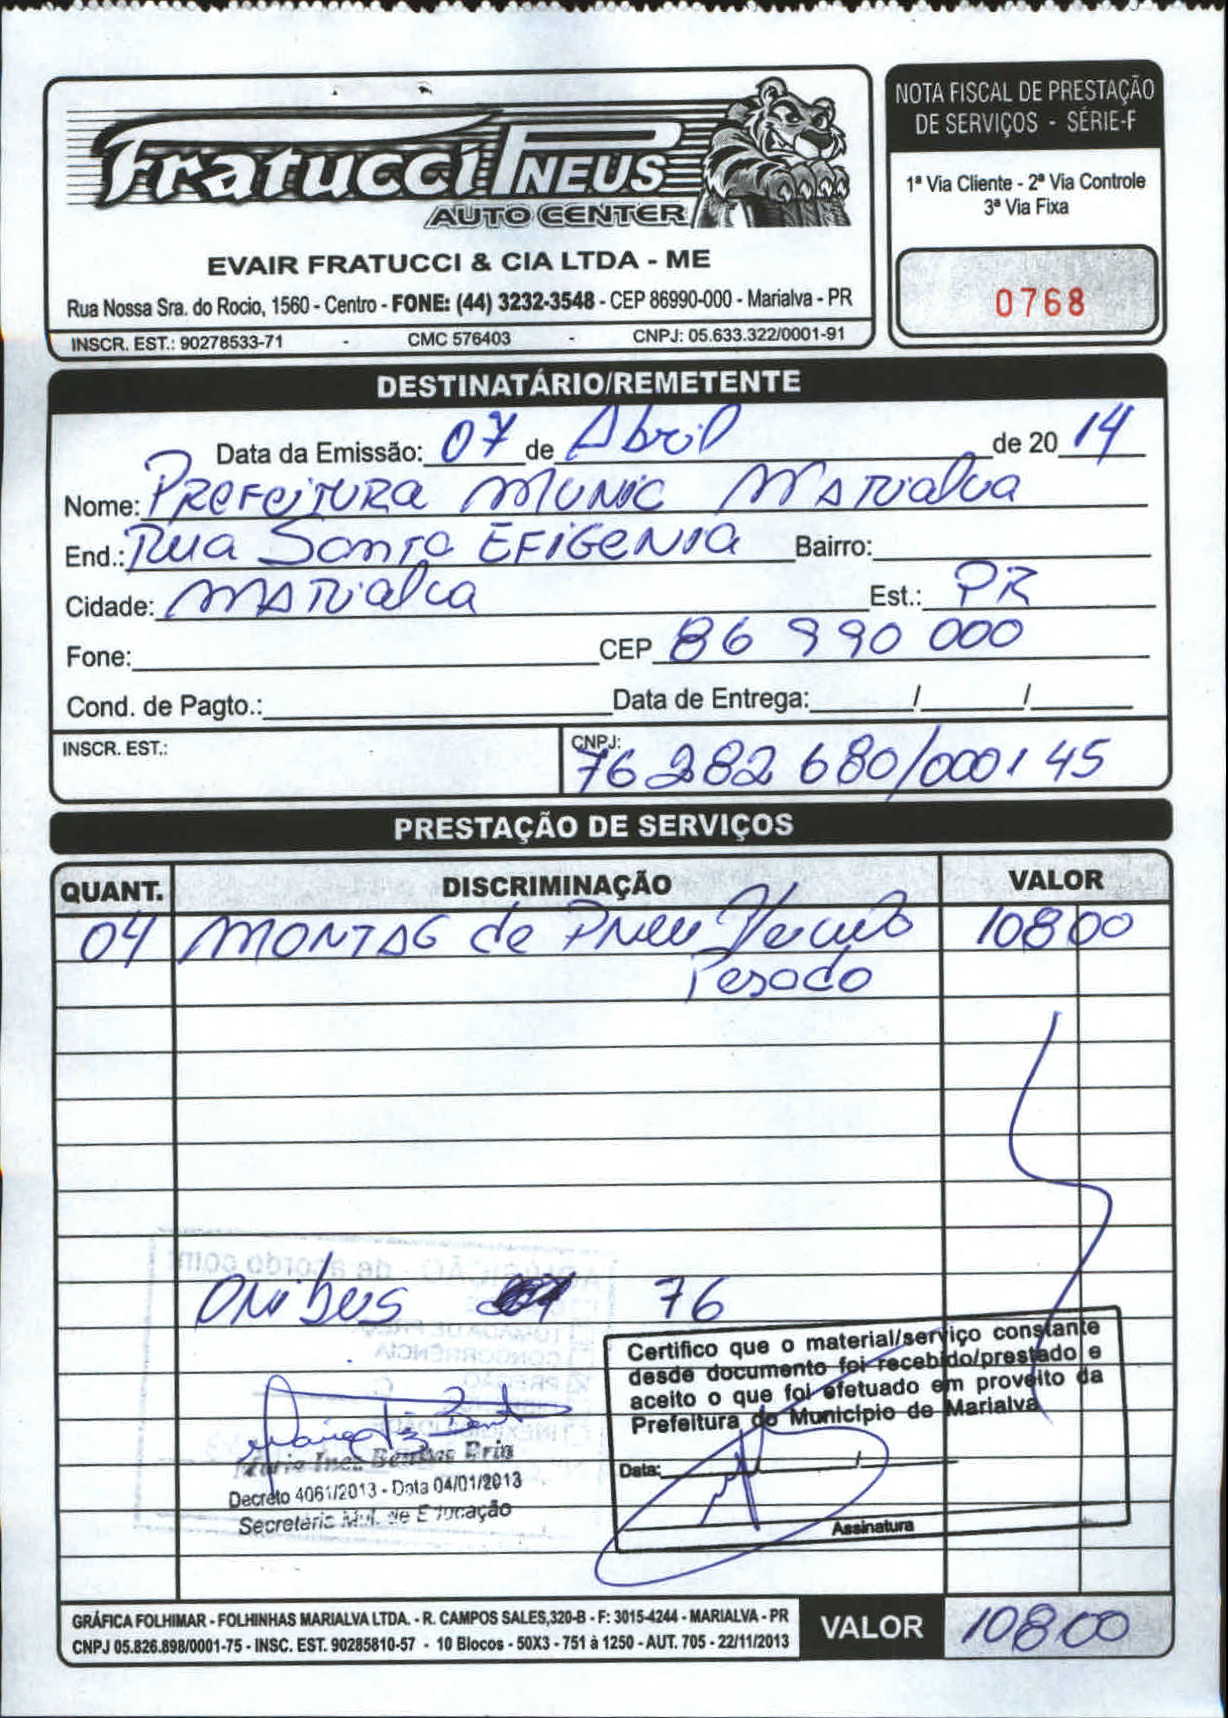 Fratucci PNEUS
AUTO CENTER
EVAIR FRATUCCI & CIA LTDA - ME
Rua Nossa Sra. do Rocio, 1560 - Centro - FONE: (44) 3232-3548 - CEP 86990-000 - Marialva - PR
INSCR. EST.: 90278533-71 - CMC 576403 - CNPJ: 05.633.322/0001-91
NOTA FISCAL DE PRESTAÇÃO
DE SERVIÇOS - SÉRIE-F
1ª Via Cliente - 2ª Via Controle
3ª Via Fixa
0768
DESTINATÁRIO/REMETENTE
Data da Emissão: 07 de Abril de 20 14
Nome: Prefeitura Munic Marialva
End.: Rua Santa Efigenia Bairro:
Cidade: Marialva Est.: PR
Fone: CEP 86 990 000
Cond. de Pagto.: Data de Entrega: / /
INSCR. EST.: CNPJ: 76 282 680/0001 45
PRESTAÇÃO DE SERVIÇOS
QUANT. DISCRIMINAÇÃO VALOR
04 MONTAG de Pneu Veiculo 108 00
Pesado
AQUISIÇÃO - de acordo com:
Onibus 76
TOMADA DE PREÇO
CONCORRÊNCIA
PREGÃO
Certifico que o material/serviço constante
desde documento foi recebido/prestado e
aceito o que foi efetuado em proveito da
Prefeitura do Município de Marialva
Data: /
Assinatura
Maria Inez Bentas Bria
Decreto 4061/2013 - Data 04/01/2013
Secretária Mul. de Educação
GRÁFICA FOLHIMAR - FOLHINHAS MARIALVA LTDA. - R. CAMPOS SALES,320-B - F: 3015-4244 - MARIALVA - PR
CNPJ 05.826.898/0001-75 - INSC. EST. 90285810-57 - 10 Blocos - 50X3 - 751 à 1250 - AUT. 705 - 22/11/2013
VALOR 108 00